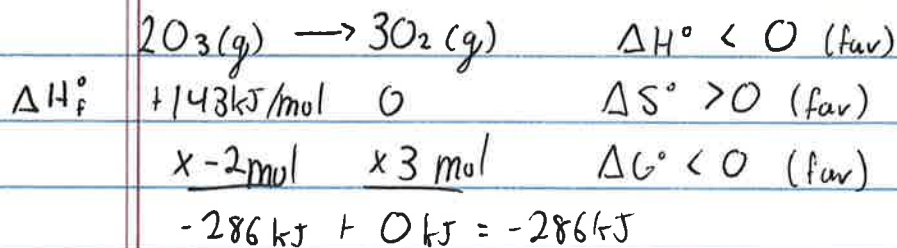 2O₃(g) ⟶ 3O₂(g) ΔH° < 0 (fav)
ΔH°f +143kJ/mol 0 ΔS° >0 (fav)
x -2mol x 3 mol ΔG° < 0 (fav)
-286 kJ + 0 kJ = -286kJ